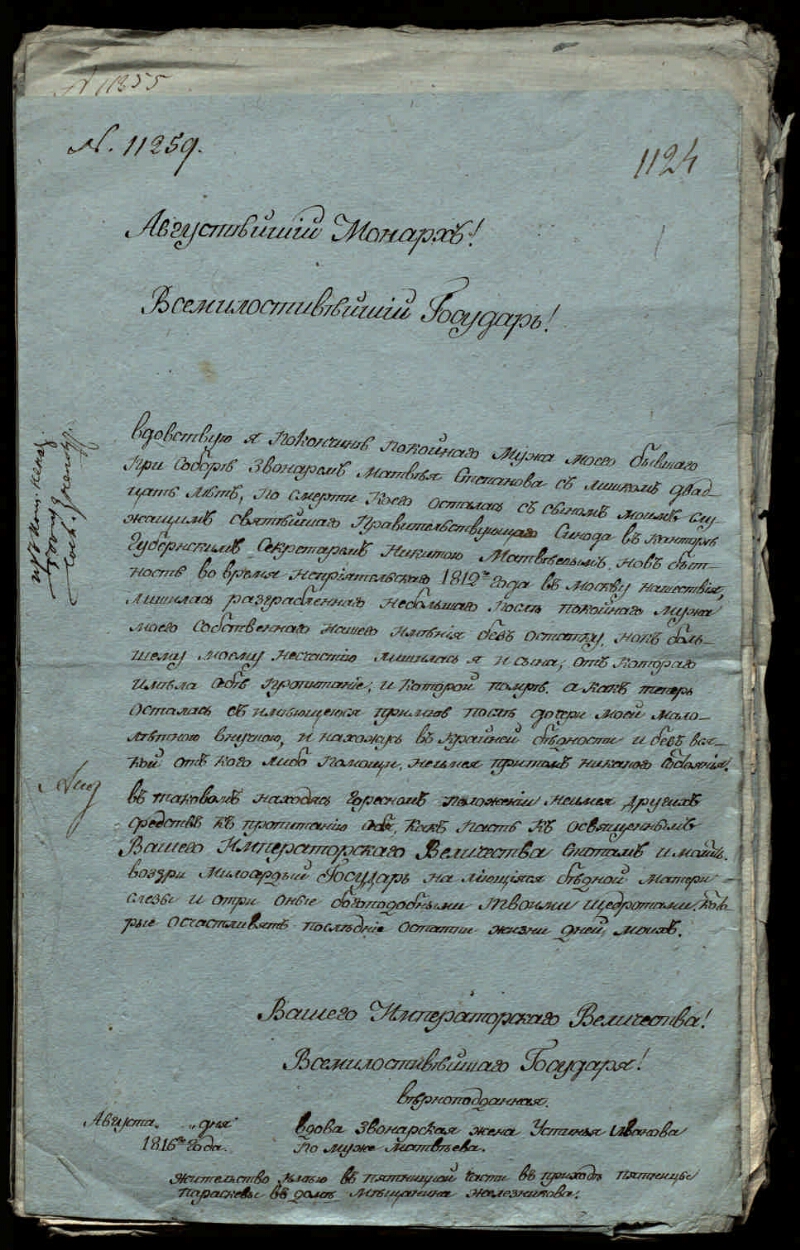 N 11255
N. 11259.
1124
Августѣйшій Монархъ!
Всемилостивѣйшій Государь!
вдовствую я по кончинѣ покойнаго мужа моего бывшаго
при Соборѣ Звонаремъ Матвѣя Степанова съ лишкомъ двад-
цать лѣтъ, по смерти коего осталась съ сыномъ моимъ, слу-
жащимъ святѣйшаго Правительствующаго Синода въ канторѣ
Губернскимъ Секретаремъ Никитою Матвѣевымъ. но въ быт-
ность во время непріятельскаго 1812го года въ Москву нашествія,
лишилась разграбленнаго небольшаго послѣ покойнаго мужа
моего собственнаго нашего имѣнія безъ остатку. но къ боль-
шему моему несчастію лишилась я и сына, отъ котораго
имѣла себѣ пропитаніе, и которой померъ. а какъ теперь
осталась съ имѣющеюся при мнѣ послѣ дочери моей мало-
лѣтною внукою, и нахожусь въ крайней бѣдности и безъ вся-
кой отъ кого либо помощи, неимея притомъ никакого состоянія.
въ таковомъ находясь горестномъ положеніи неимея другихъ
средствъ къ пропитанію себя, какъ пасть къ освященнымъ
Вашего Императорскаго Величества стопамъ и молить.
воззри Милосердый Государь на ліющіяся бѣдной матери
слезы и отри оные богоподобными твоими щедротами, кото-
рые осчастливятъ послѣдніе остатки жизни дней моихъ.
Вашего Императорскаго Величества!
Всемилостивѣйшаго Государя!
вѣрноподданная.
Августа „ дня
1816го года.
вдова Звонарская жена Устинья Иванова
по мужѣ Матвѣева.
жительство имѣю въ пятницкой части въ приходѣ пятницы
параскевы въ домѣ мѣщанина Железникова.